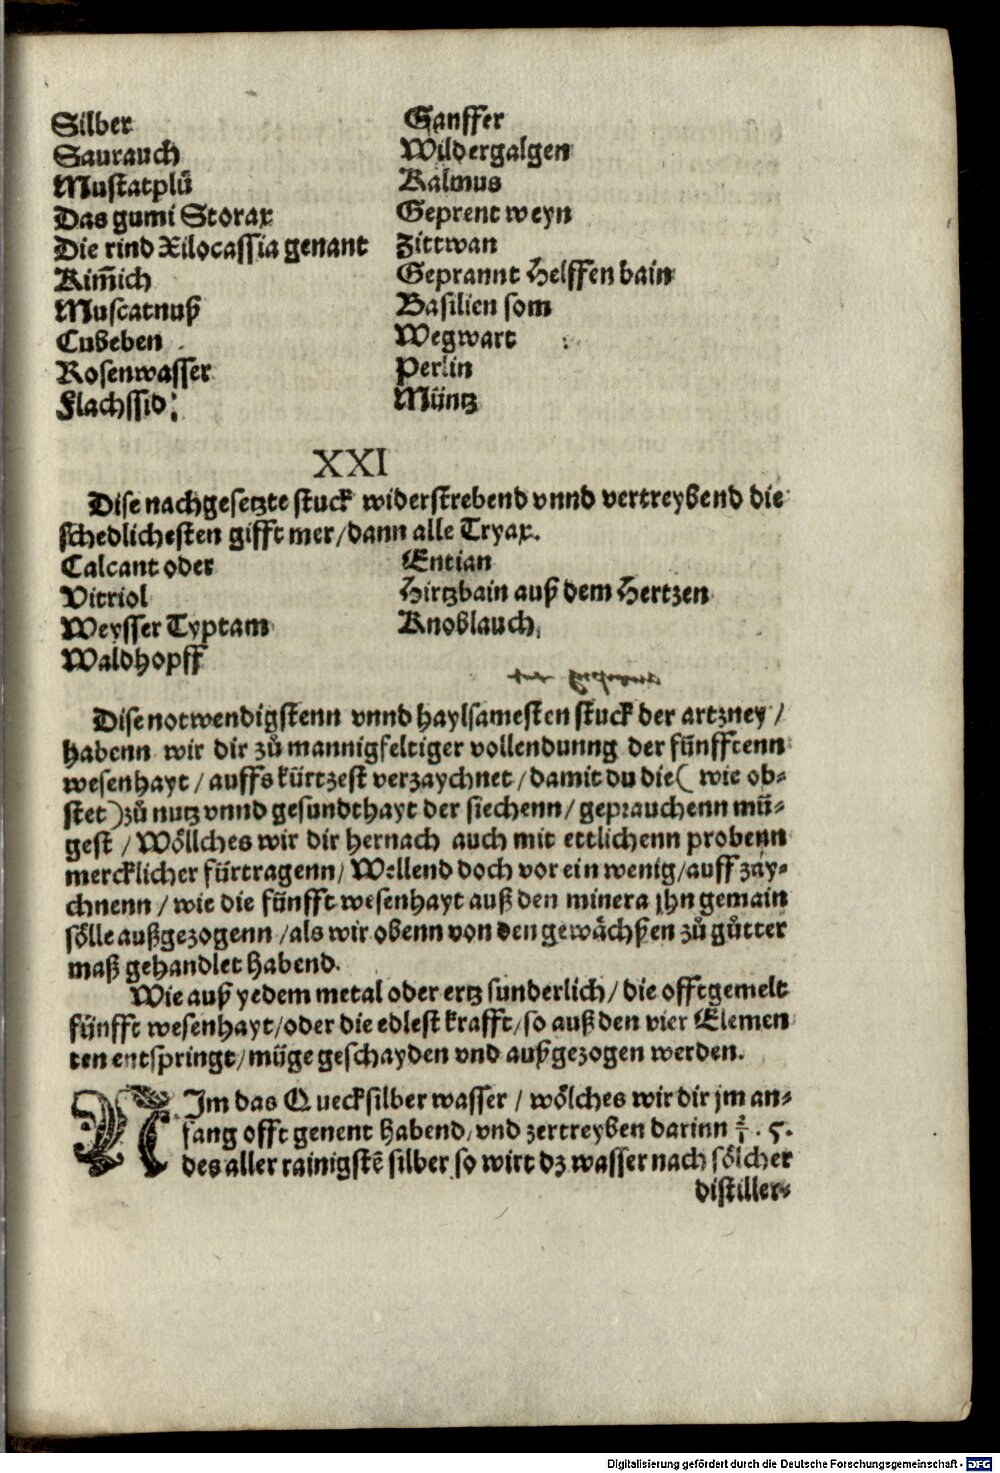 Silber
Saurauch
Mustatplů
Das gumi Storax
Die rind Xilocassia genant
Kim̃ich
Muscatnuß
Cubeben
Rosenwasser
Flachssid:
Ganffer
Wildergalgen
Kalmus
Geprent weyn
Zittwan
Geprannt Helffen bain
Basilien som
Wegwart
Perlin
Müntz
XXI
Dise nachgesetzte stuck widerstrebend vnnd vertreybend die
schedlichesten gifft mer/dann alle Tryax.
Calcant oder
Vitriol
Weysser Typtam
Waldhopff
Entian
Hirtzbain auß dem Hertzen
Knoblauch,
Dise notwendigstenn vnnd haylsamesten stuck der artzney /
habenn wir dir zů mannigfeltiger vollendunng der fünfftenn
wesenhayt / auffs kürtzest verzaychnet / damit du die ( wie ob⸗
stet) zů nutz vnnd gesundthayt der siechenn / geprauchenn mü⸗
gest / Wöllches wir dir hernach auch mit ettlichenn probenn
mercklicher fürtragenn/ Wellend doch vor ein wenig/auff zay⸗
chnenn / wie die fünfft wesenhayt auß den minera jhn gemain
sölle außgezogenn /als wir obenn von den gewächßen zů gůtter
maß gehandlet habend.
Wie auß yedem metal oder ertz sunderlich / die offtgemelt
fünfft wesenhayt/oder die edlest krafft/so auß den vier Elemen
ten entspringt/müge geschayden vnd außgezogen werden.
NJm das Quecksilber wasser / wölches wir dir jm an⸗
fang offt genent habend/vnd zertreyben darinn . 5.
des aller rainigstē silber so wirt dz wasser nach sölcher
distiller⸗
Digitalisierung gefördert durch die Deutsche Forschungsgemeinschaft - DFG